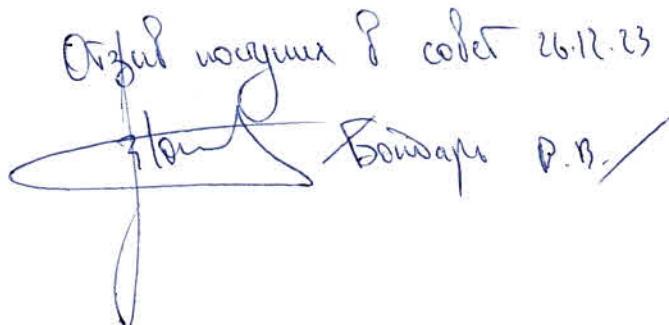 Отзыв поступил в совет 26.12.23
/Бондарь Р.В./